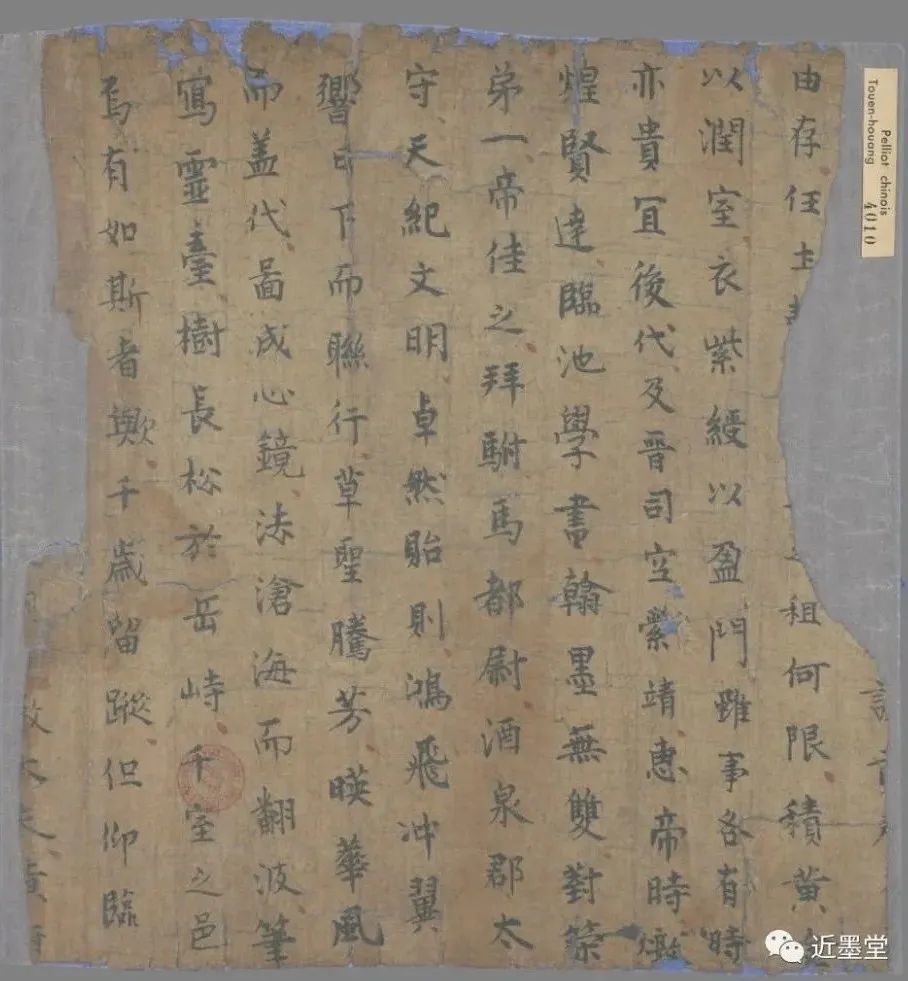 由存任土租何限積黃
以潤室衣紫綬以盈門雖事各有時
亦貴冝後代及晉司空索靖惠帝時燉
煌賢達臨池學書翰墨無雙對策
弟一帝佳之拜駙馬都尉酒泉郡太
守天紀文明卓然貽則鴻飛沖翼
響日下而聯行草聖騰芳暎華風
而盖代畐成心鏡法滄海而翻波筆
寫靈臺樹長松於岳峙千室之邑
焉有如斯者歟千歲留蹤但仰臨
Pelliot chinois
Touen-houang
4010
近墨堂